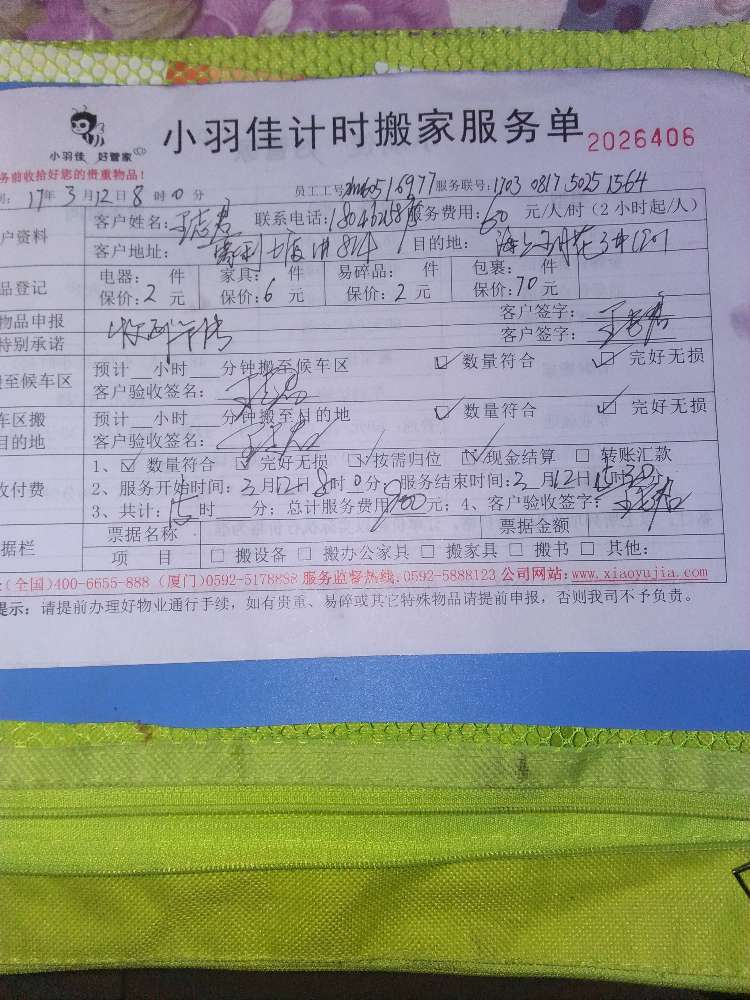 小羽佳 好管家
小羽佳计时搬家服务单 2026406
务前收拾好您的贵重物品!
17年3月12日8时0分 员工工号 服务联号:1703 0817 5025 1564
户资料 客户姓名: 联系电话: 服务费用:60元/人/时(2小时起/人)
客户地址: 目的地:
品登记 电器: 件 家具: 件 易碎品: 件 包裹: 件
保价:2元 保价:6元 保价:2元 保价:70元
物品申报 客户签字:
特别承诺 客户签字:
搬至候车区 预计__小时___分钟搬至候车区 ☑数量符合 ☑完好无损
客户验收签名:
车区搬 预计__小时___分钟搬至目的地 ☑数量符合 ☑完好无损
目的地 客户验收签名:
收付费 1、☑数量符合 ☑完好无损 ☑按需归位 ☑现金结算 □转账汇款
2、服务开始时间:3月12日8时0分;服务结束时间:3月12日 时 分
3、共计: 时___分;总计服务费用 元;4、客户验收签字:
据栏 票据名称 票据金额
项 目 □搬设备 □搬办公家具 □搬家具 □搬书 □其他:
(全国)400-6655-888 (厦门)0592-5178888 服务监督热线:0592-5888123 公司网站:www.xiaoyujia.com
提示:请提前办理好物业通行手续,如有贵重、易碎或其它特殊物品请提前申报,否则我司不予负责。